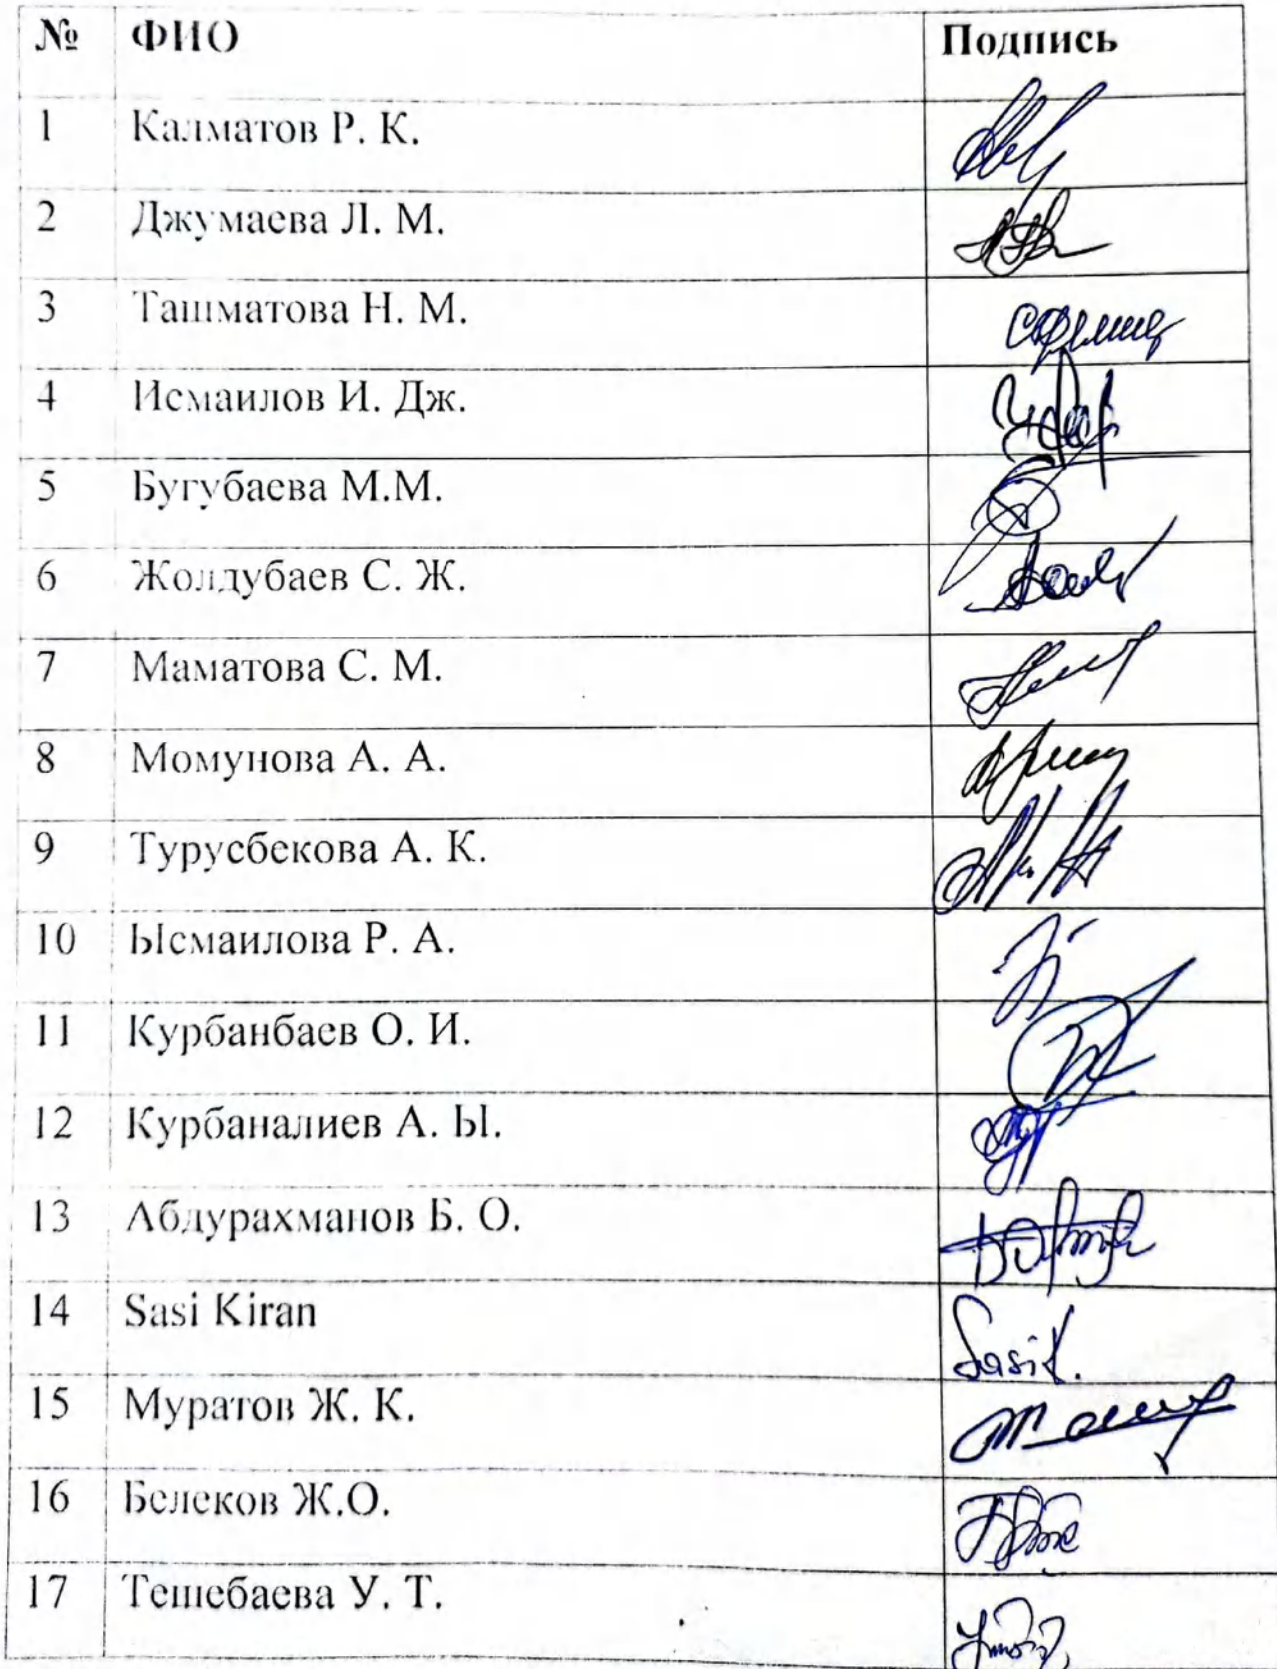 № ФИО Подпись
1 Калматов Р. К.
2 Джумаева Л. М.
3 Ташматова Н. М.
4 Исмаилов И. Дж.
5 Бугубаева М.М.
6 Жолдубаев С. Ж.
7 Маматова С. М.
8 Момунова А. А.
9 Турусбекова А. К.
10 Ысмаилова Р. А.
11 Курбанбаев О. И.
12 Курбаналиев А. Ы.
13 Абдурахманов Б. О.
14 Sasi Kiran SasiK.
15 Муратов Ж. К.
16 Белеков Ж.О.
17 Тешебаева У. Т.